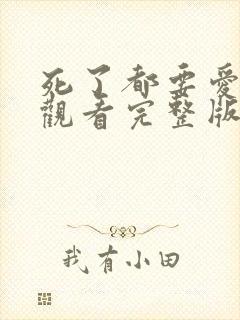 死了都要愛
觀看完整版
我有小田